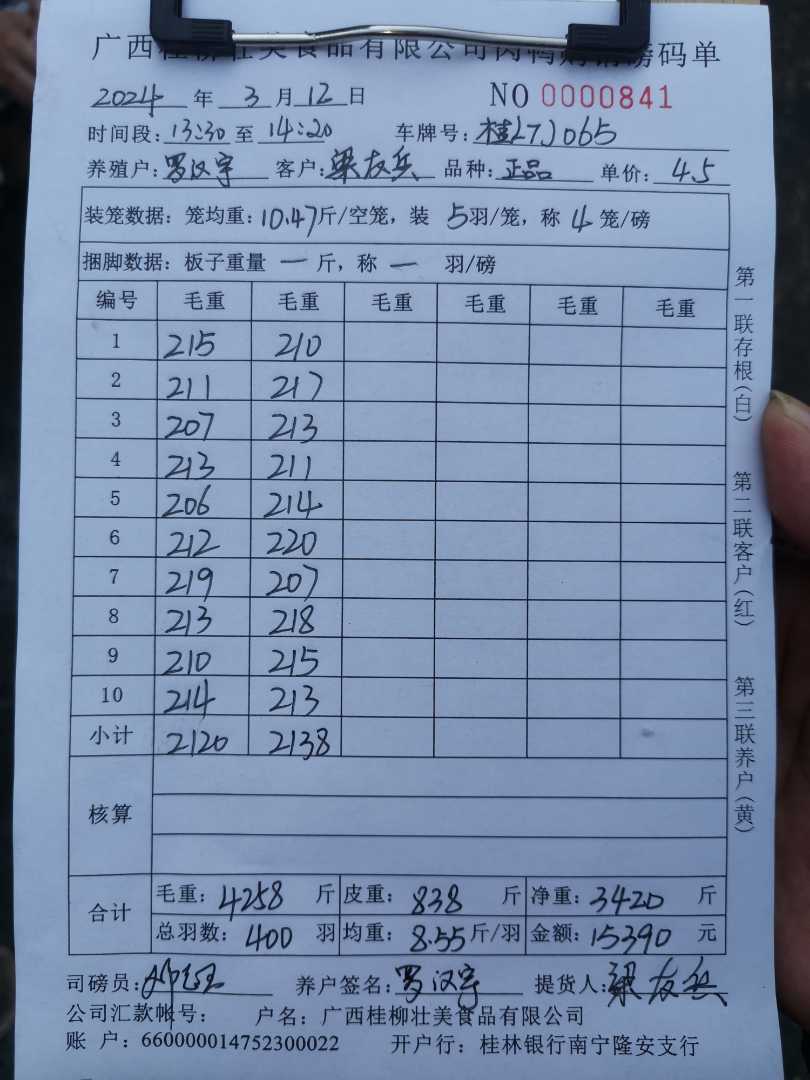 广西桂柳壮美食品有限公司肉鸭购销磅码单
2024 年 3 月 12 日 NO 0000841
时间段: 13:30 至 14:20 车牌号: 桂L7J065
养殖户: 罗汉宇 客户: 梁友兵 品种: 正品 单价: 4.5
装笼数据: 笼均重: 10.47斤/空笼, 装 5羽/笼, 称 4 笼/磅
捆脚数据: 板子重量 一 斤, 称 一 羽/磅
编号 毛重 毛重 毛重 毛重 毛重 毛重
1 215 210
2 211 217
3 207 213
4 213 211
5 206 214
6 212 220
7 219 207
8 213 218
9 210 215
10 214 213
小计 2120 2138
核算
合计
毛重: 4258 斤 皮重: 838 斤 净重: 3420 斤
总羽数: 400 羽 均重: 8.55斤/羽 金额: 15390 元
司磅员: 养户签名: 罗汉宇 提货人: 梁友兵
公司汇款帐号: 户名: 广西桂柳壮美食品有限公司
账 户: 660000014752300022 开户行: 桂林银行南宁隆安支行
第一联存根(白)
第二联客户(红)
第三联养户(黄)